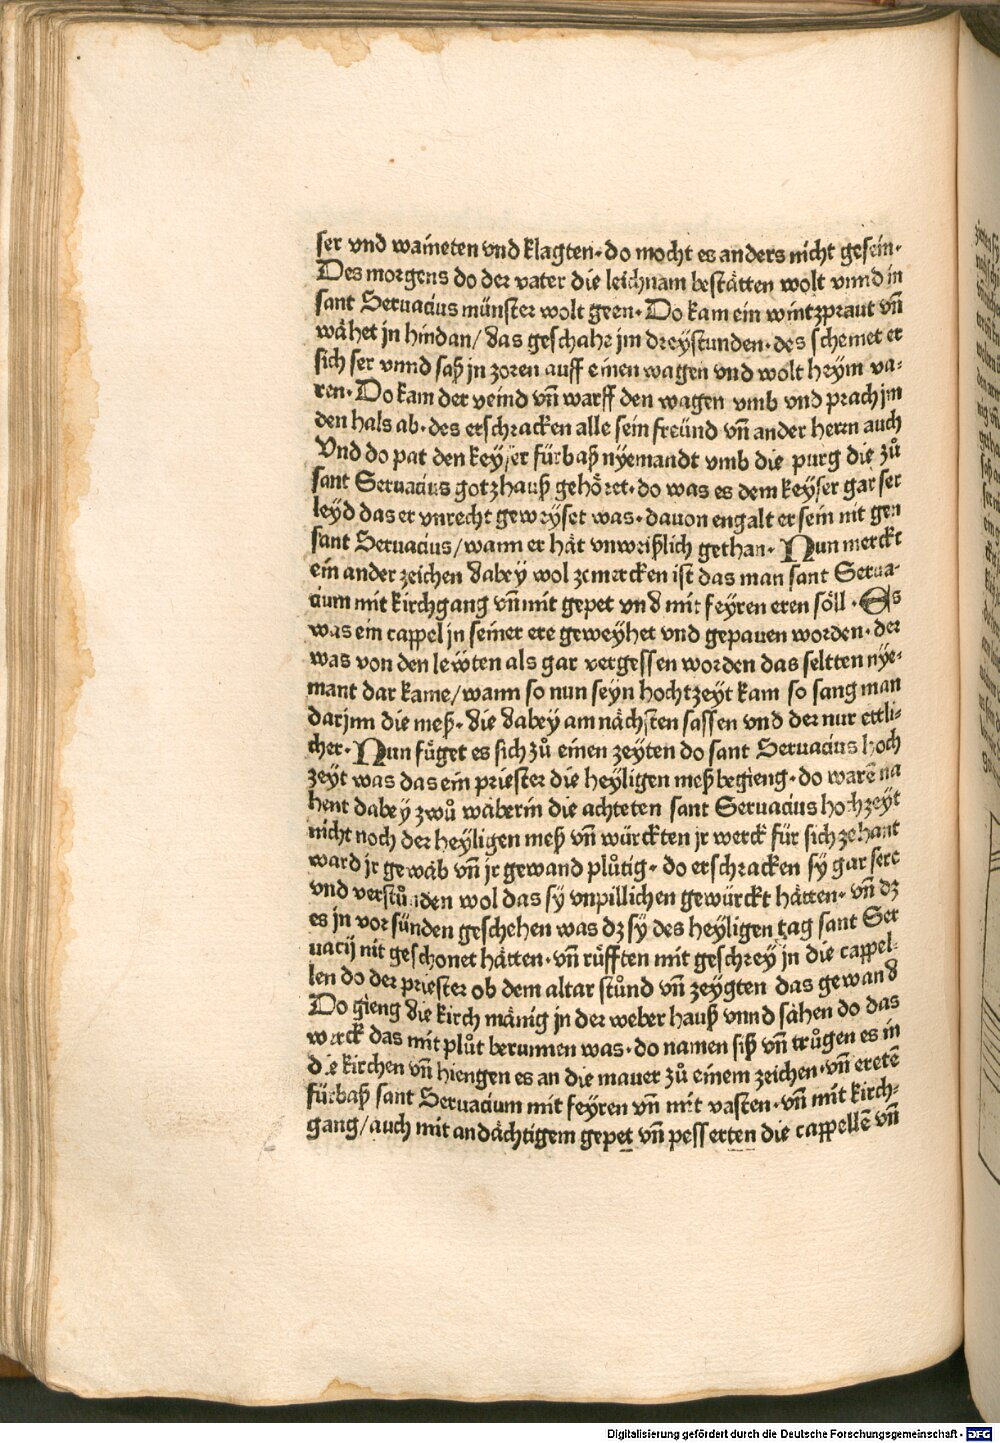 ser vnd waineten vnd klagten· do mocht es anders nicht gesein·
Des morgens do der vater die leichnam bestätten wolt vnnd in
sant Seruacius münster wolt geen· Do kam ein wintzpraut vn̄
wähet jn hindan/ das geschahe jm dreystunden· des schemet er
sich ser vnnd saß jn zoren auff einen wagen vnd wolt heym va-
ren· Do kam der veind vn̄ warff den wagen vmb vnd prach jm
den hals ab· des erschracken alle sein freünd vn̄ ander herrn auch
Vnd do pat den keyser fürbaß nyemandt vmb die purg die zů
sant Seruacius gotzhauß gehöret· do was es dem keyser gar ser
leyd das er vnrecht geweyset was· dauon engalt er sein nit gen
sant Seruacius/ wann er hät vnweißlich gethan· Nun merckt
ein ander zeichen dabey wol zemercken ist das man sant Serua-
cium mit kirchgang vn̄ mit gepet vnd mit feyren eren söll· Es
was ein cappel jn seiner ere geweyhet vnd gepauen worden· der
was von den lewten als gar vergessen worden das seltten nye-
mant dar kame/ wann so nun seyn hochtzeyt kam so sang man
darjnn die meß· die dabey am nächsten sassen vnd der nur ettli-
cher· Nun füget es sich zů einen zeyten do sant Seruacius hoch
zeyt was das ein priester die heyligen meß begieng· do warē na
hent dabey zwů wäberin die achteten sant Seruacius hochzeyt
nicht noch der heyligen meß vn̄ würckten jr werck für sich zehant
ward jr gewäb vn̄ jr gewand plůtig· do erschracken sy gar sere
vnd verstůnden wol das sy vnpillichen gewürckt hätten· vn̄ dz
es jn vor sünden geschehen was dz sy des heyligen tag sant Ser
uacij nit geschonet hätten· vn̄ rüfften mit geschrey jn die cappel-
len do der priester ob dem altar stůnd vn̄ zeygten das gewand
Do gieng die kirch mänig jn der weber hauß vnnd sähen do das
werck das mit plůt berunnen was· do namen siß vn̄ trůgen es in
die kirchen vn̄ hiengen es an die mauer zů einem zeichen· vn̄ eretē
fürbaß sant Seruacium mit feyren vn̄ mit vasten· vn̄ mit kirch-
gang/ auch mit andächtigem gepet vn̄ pesserten die cappellē vn̄
Digitalisierung gefördert durch die Deutsche Forschungsgemeinschaft - DFG